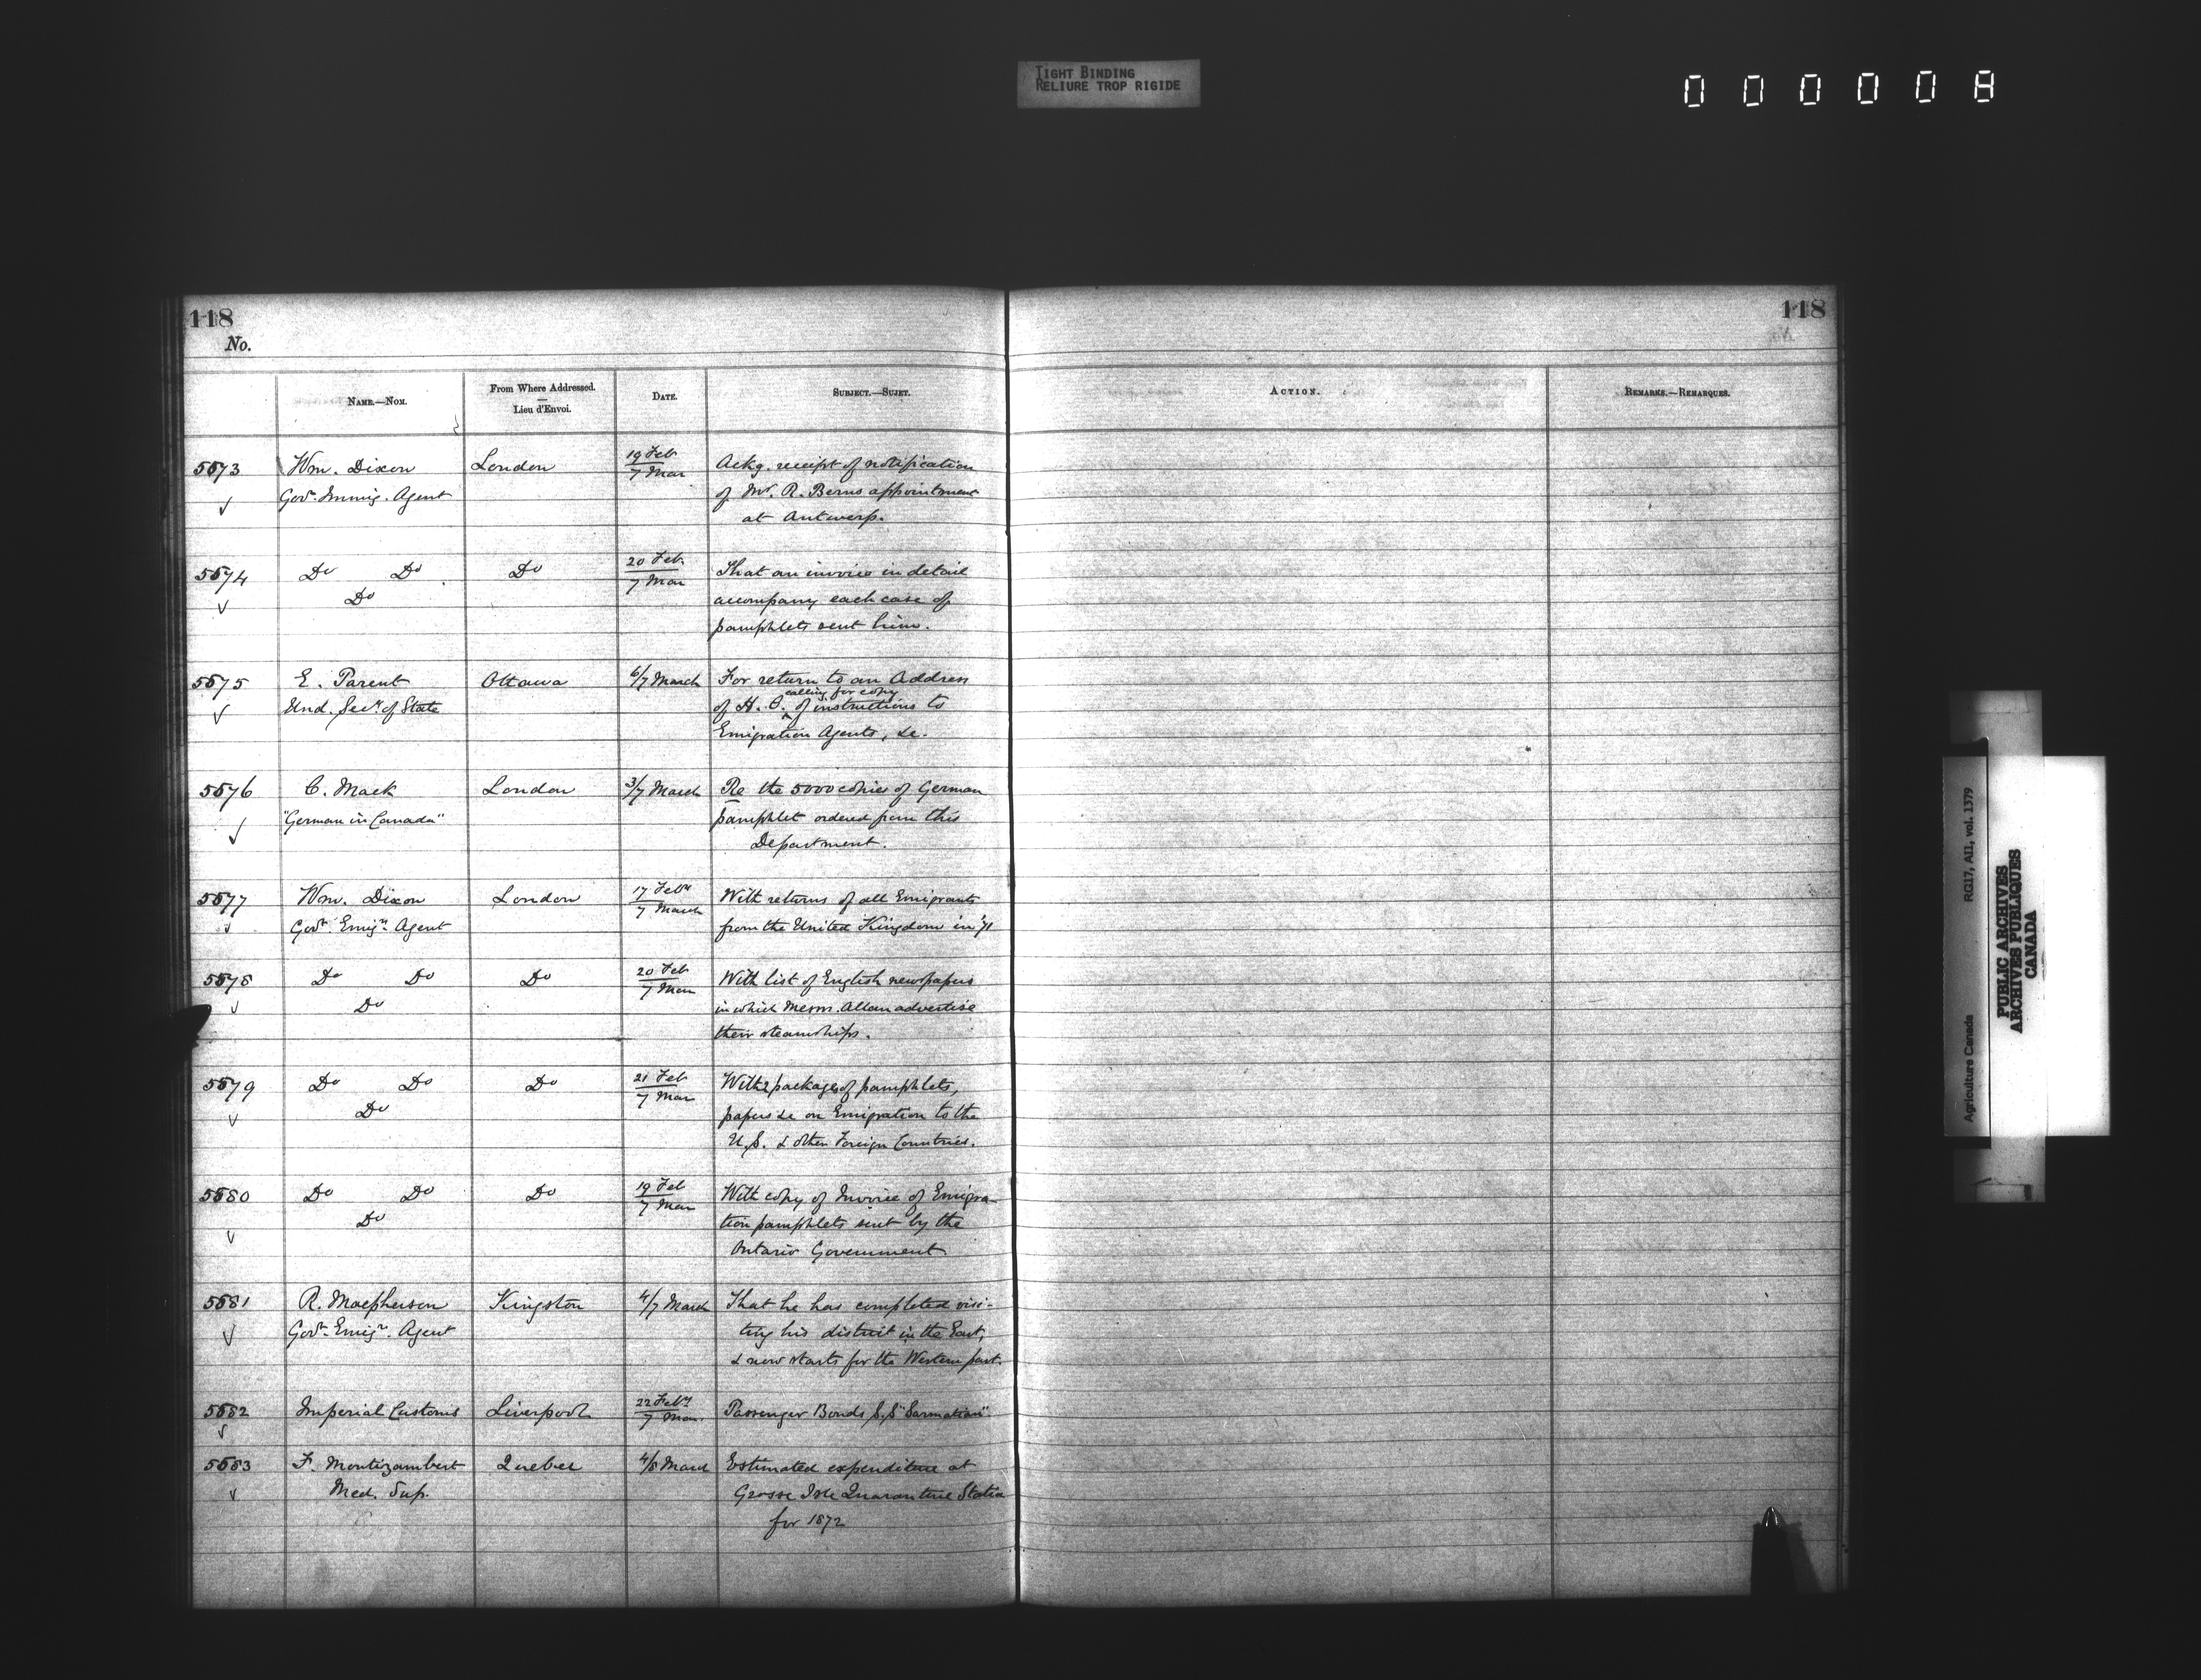 TIGHT BINDING
RELIURE TROP RIGIDE
0 0 0 0 0 8
118
No.
118
NAME.—NOM.
From Where Addressed.
—
Lieu d'Envoi.
DATE.
SUBJECT.—SUJET.
ACTION.
REMARKS.—REMARQUES.
5573 Wm. Dixon London 19 Feb Ackg. receipt of notification
Govt. Immig. Agent 7 Mar of Mr. R. Berns appointment
✓ at Antwerp.
5574 Do Do Do 20 Feb. That an invoice in detail
✓ Do 7 Mar accompany each case of
pamphlets sent him.
5575 E. Parent Ottawa 6/7 March For return to an Address
✓ Und. Secy. of State of H. C. calling for copy of instructions to
Emigration Agents, &c.
5576 C. Mack London 3/7 March Re the 5000 copies of German
✓ "German in Canada" pamphlet ordered from this
Department.
5577 Wm. Dixon London 17 Feby With returns of all Emigrants
✓ Govt. Emign. Agent 7 March from the United Kingdom in '71
5578 Do Do Do 20 Feb With list of English newspapers
✓ Do 7 Mar in which Messrs. Allan advertise
their steamships.
5579 Do Do Do 21 Feb With 2 packages of pamphlets,
✓ Do 7 Mar papers &c on Emigration to the
U.S. & other Foreign Countries.
5580 Do Do Do 19 Feb With copy of Invoice of Emigra-
✓ Do 7 Mar tion pamphlets sent by the
Ontario Government
5581 R. Macpherson Kingston 4/7 March That he has completed visi-
✓ Govt. Emign. Agent ting his district in the East,
& now starts for the Western part.
5582 Imperial Customs Liverpool 22 Feby Passenger Bonds S.S "Sarmatian".
✓ 7 Mar.
5583 F. Montizambert Quebec 4/8 March Estimated expenditure at
✓ Med. Sup. Grosse Isle Quarantine Station
for 1872
Agriculture Canada RG17, AII, vol. 1379
PUBLIC ARCHIVES
ARCHIVES PUBLIQUES
CANADA